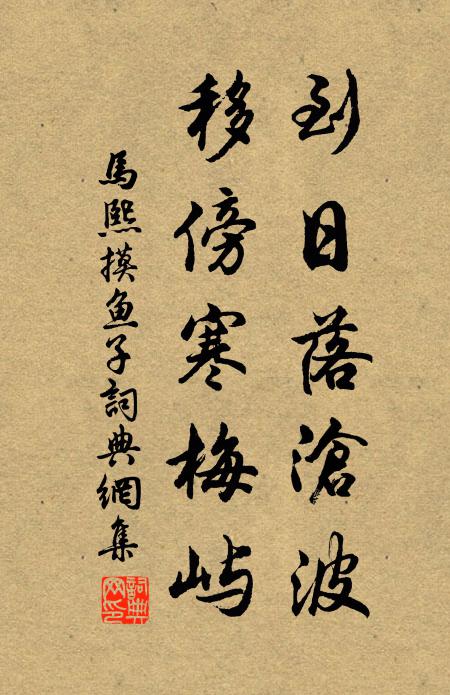 到日落滄波
移傍寒梅屿
馬熙摸魚子詞典網集
詞典网印